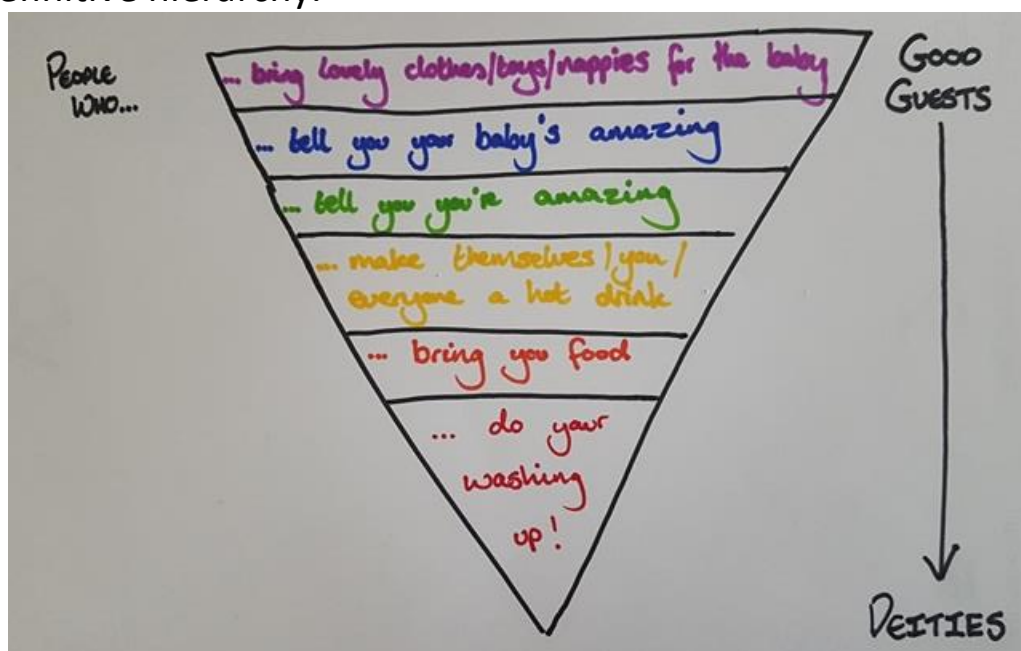 PEOPLE
WHO...
... bring lovely clothes/toys/nappies for the baby
... tell you your baby's amazing
... tell you you're amazing
... make themselves/you/
everyone a hot drink
... bring you food
... do your
washing
up!
GOOD
GUESTS
DEITIES